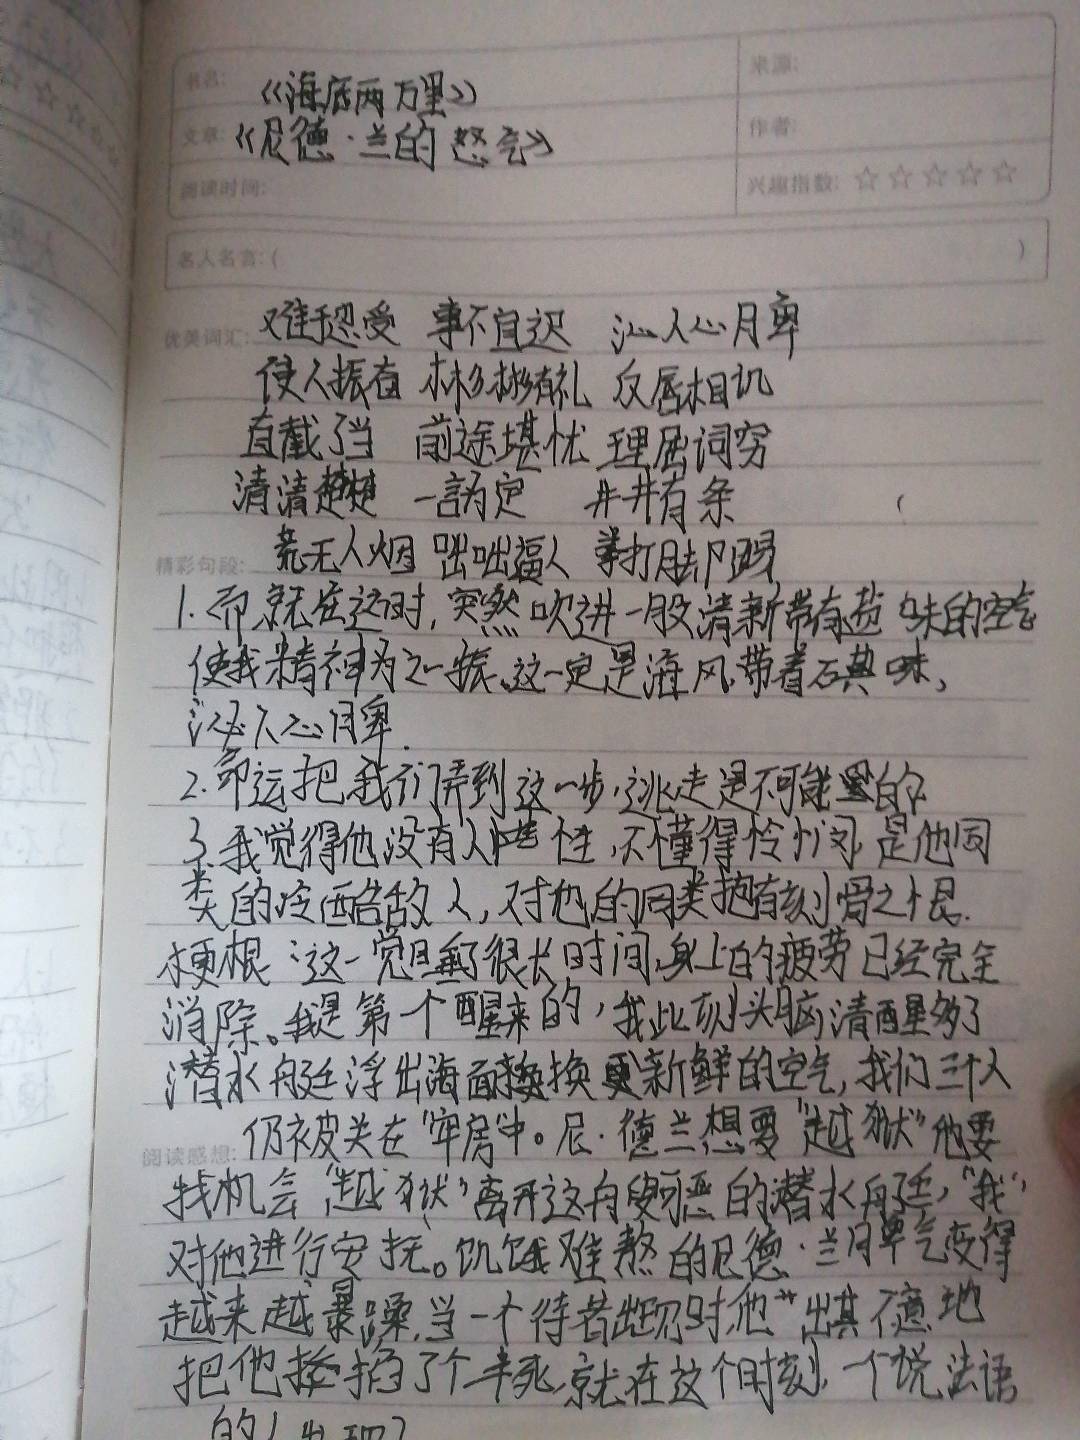 书名: 《海底两万里》 来源:
文章: 《尼德·兰的怒气》 作者:
阅读时间: 兴趣指数: ☆☆☆☆☆
名人名言: ( )
优美词汇: 难于忍受 事不宜迟 沁人心脾
使人振奋 彬彬有礼 反唇相讥
直截了当 前途堪忧 理屈词穷
清清楚楚 一言为定 井井有条
荒无人烟 咄咄逼人
精彩句段:
1. 而就在这时,突然吹进一股清新带有盐味的空气
使我精神为之一振、这一定是海风,带着碘味,
沁人心脾.
2. 命运把我们弄到这一步,逃走是不可能的
3. 我觉得他没有人性,不懂得怜悯,是他同
类的冷酷敌人,对他的同类抱有刻骨之恨.
梗概:这一觉睡了很长时间,身上的疲劳已经完全
消除。我是第一个醒来的,我此刻头脑清醒多了
潜水艇浮出海面换换更新鲜的空气,我们三个人
仍被关在“牢房”中。尼·德兰想要“越狱”他要
阅读感想:
找机会“越狱”离开这艘可恶的潜水艇,“我”
对他进行安抚。饥饿难熬的尼德·兰脾气变得
越来越暴躁,当一个侍者出现时,他“出其不意地
把他掐了个半死,就在这个时刻,一个说法语
的